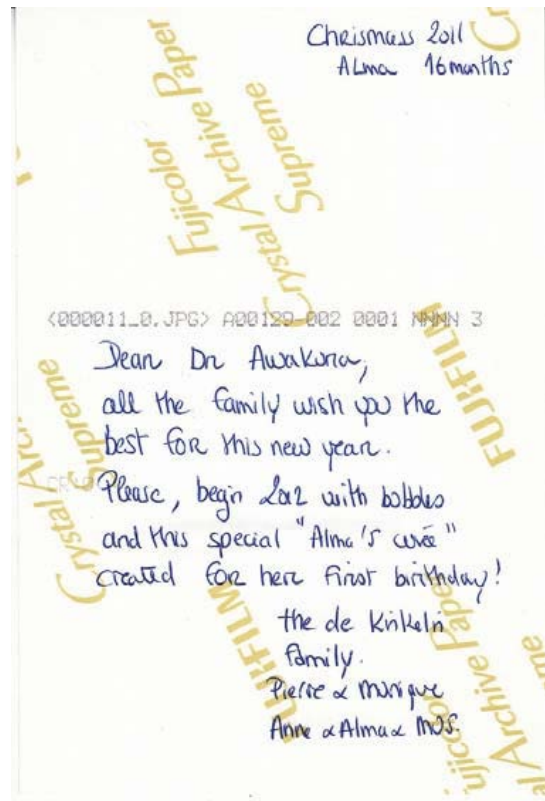 Chrismass 2011
Alma 16 months
Fujicolor Paper
Crystal Archive
Supreme
<000011_0.JPG> A00129-002 0001 NNNN 3
FUJIFILM
Dear Dr Awakura,
all the family wish you the
best for this new year.
Please, begin 2012 with bobbles
and this special "Alma's cuvée"
created for here first birthday!
the de Kirkeln
family.
Pierre & Monique
Anne & Alma &
Crystal Arc
Supreme
FUJIFILM
ujicolor Pape
l Archive
me